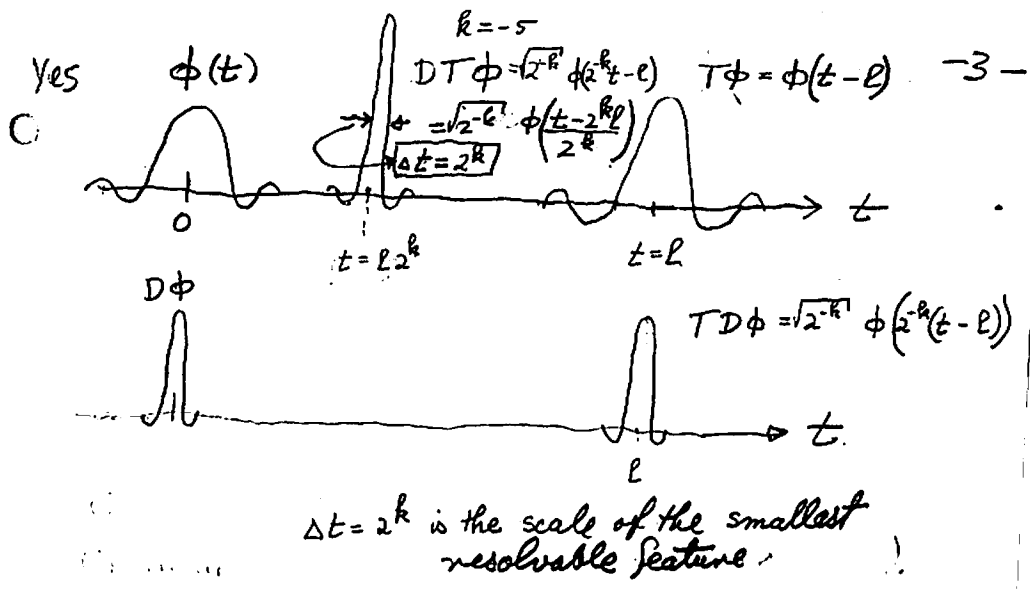 k = -5
Yes φ(t) DTφ = √2^{-k} φ(2^{-k}t - ℓ) Tφ = φ(t - ℓ) -3-
= √2^{-k} φ((t - 2^k ℓ)/2^k)
Δt = 2^k
t
0
t = ℓ2^k t = ℓ
Dφ
TDφ = √2^{-k} φ(2^{-k}(t - ℓ))
t
ℓ
Δt = 2^k is the scale of the smallest
resolvable feature.